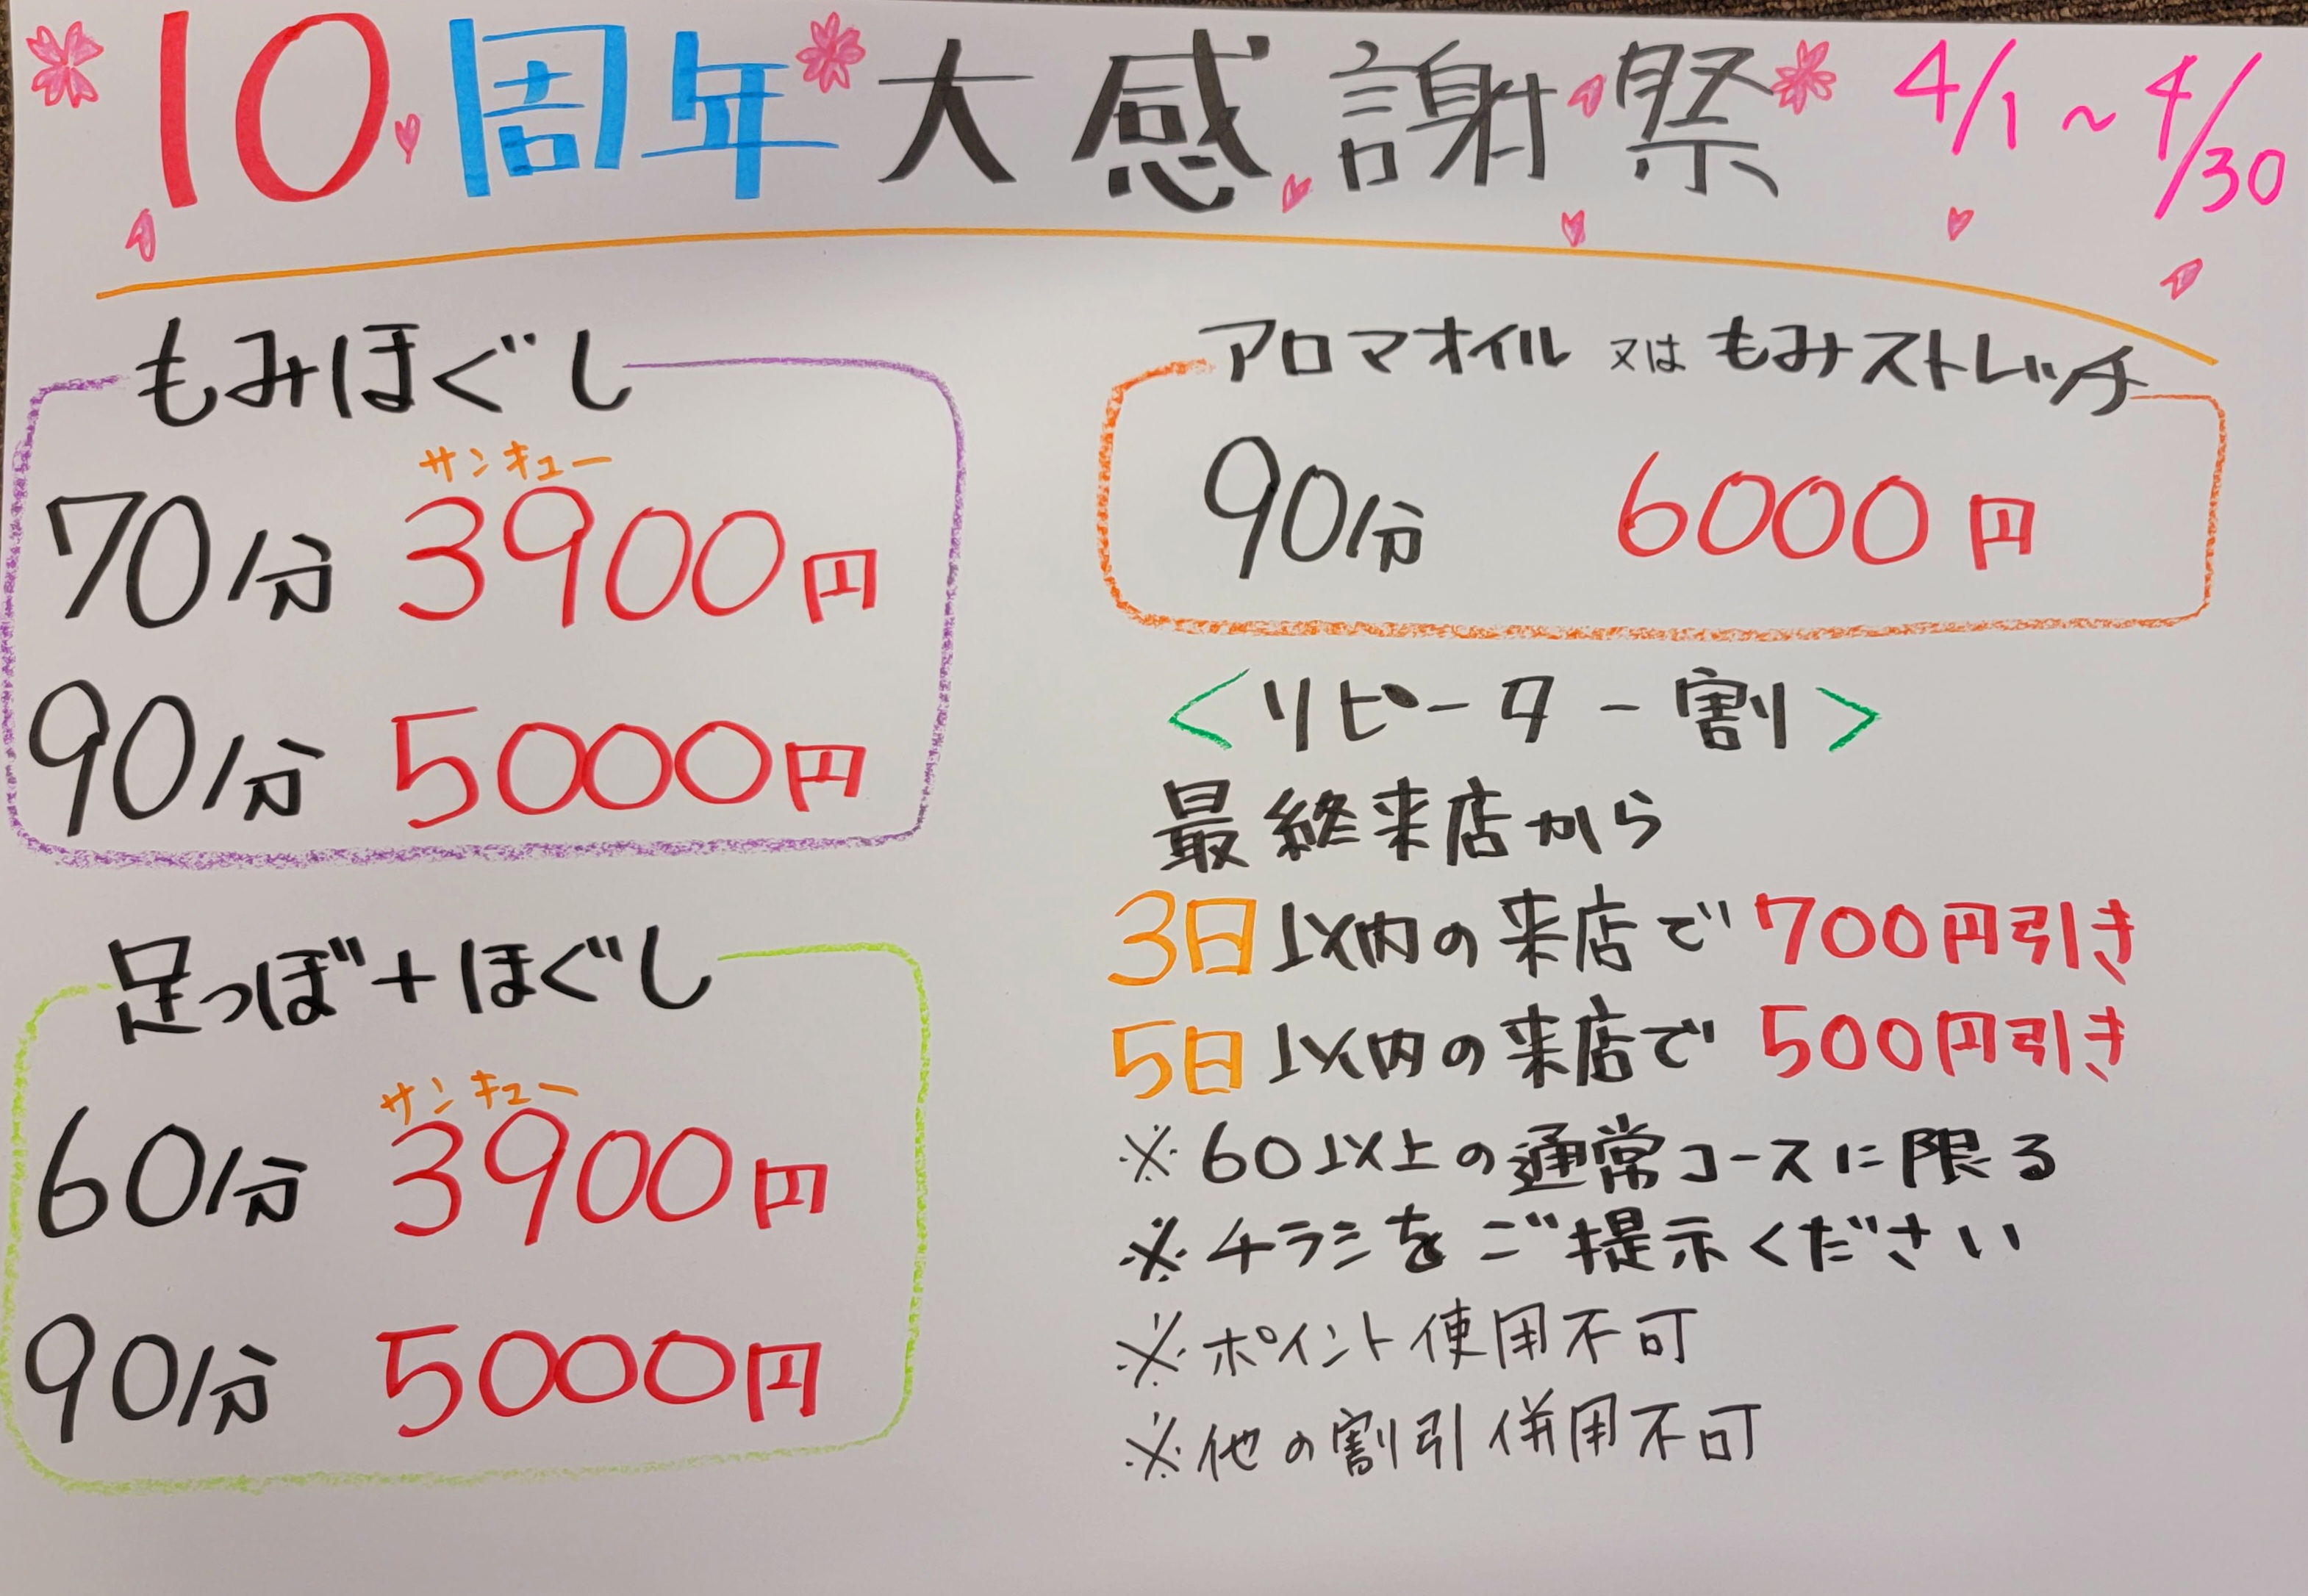 10周年大感謝祭 4/1～4/30
もみほぐし
サンキュー
70分 3900円
90分 5000円
足つぼ+ほぐし
サンキュー
60分 3900円
90分 5000円
アロマオイル又はもみストレッチ
90分 6000円
<リピーター割>
最終来店から
3日以内の来店で700円引き
5日以内の来店で500円引き
※60以上の通常コースに限る
※チラシをご提示ください
※ポイント使用不可
※他の割引併用不可